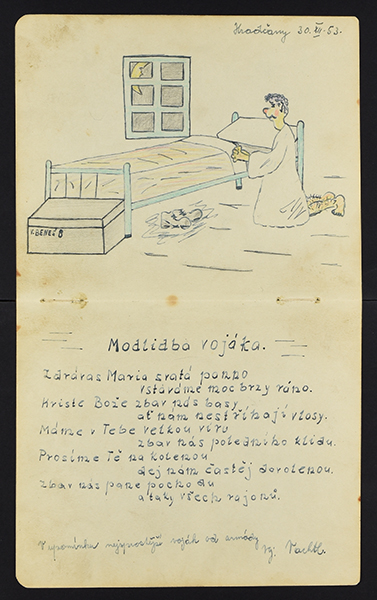 Hradčany 30.XII.53.
V.BENEŠ
Modlidba vojáka.
Zdrávas Maria svatá panno
vstáváme moc brzy ráno.
Kriste Bože zbav nás basy
ať nám nestříhají vlasy.
Máme v Tebe velkou víru
zbav nás poledního klidu.
Prosíme Tě na kolenou
dej nám častěj dovolenou.
Zbav nás pane pochodu
a taky všech rajonů.
Vzpomínku nejsprostější voják od armády
Vachtl.